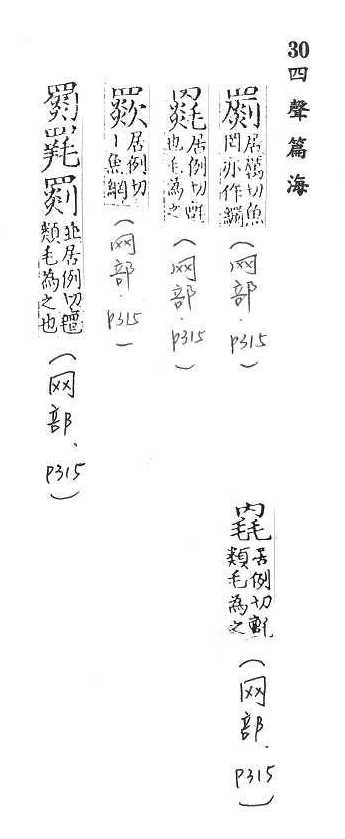 30 四聲篇海
罽 居厲切魚罔亦作
(网部.P315)
居例切氈也毛為之
(网部.P315)
居例切丨魚網
(网部.P315)
並居例切氊類毛為之也
(网部、P315)
居例切氈類毛為之
(网部、P315)